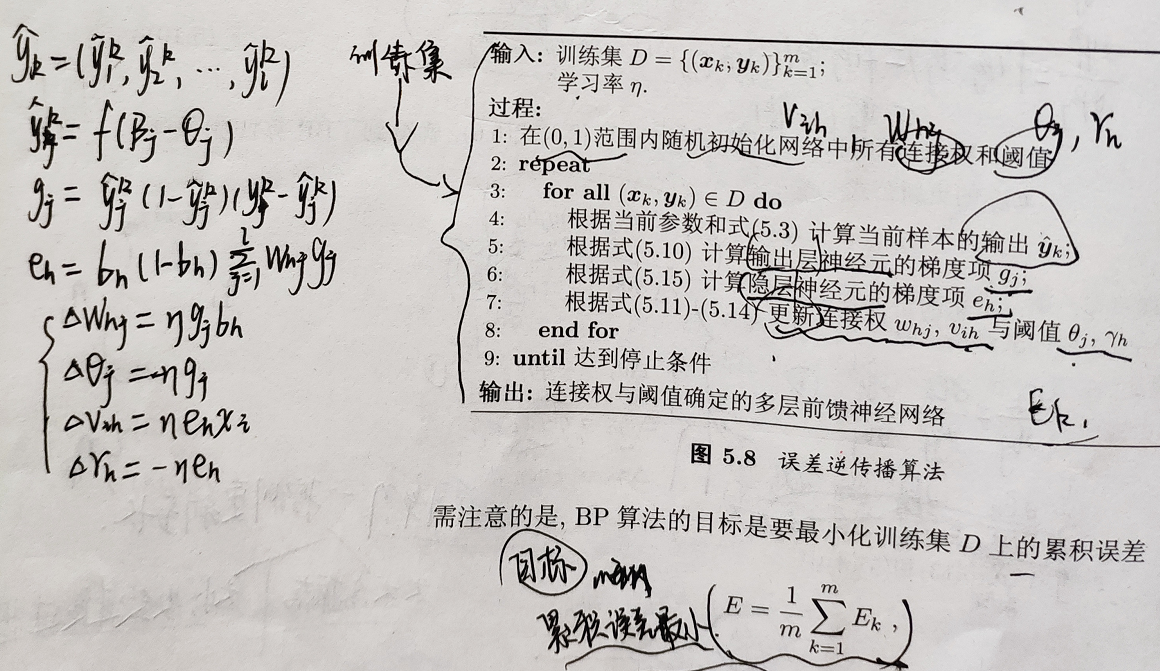 ŷ_k = (ŷ₁ᵏ, ŷ₂ᵏ, …, ŷ_lᵏ)
ŷ_jᵏ = f(β_j − θ_j)
g_j = ŷ_jᵏ(1 − ŷ_jᵏ)(y_jᵏ − ŷ_jᵏ)
e_h = b_h(1 − b_h) Σ_{j=1}^{l} w_hj g_j
Δw_hj = η g_j b_h
Δθ_j = −η g_j
Δv_ih = η e_h x_i
Δγ_h = −η e_h
训练集
输入: 训练集 D = {(x_k, y_k)}_{k=1}^m;
学习率 η.
过程:
v_ih w_hj θ_j, γ_h
1: 在(0,1)范围内随机初始化网络中所有连接权和阈值
2: repeat
3: for all (x_k, y_k) ∈ D do
4: 根据当前参数和式(5.3) 计算当前样本的输出 ŷ_k;
5: 根据式(5.10) 计算输出层神经元的梯度项 g_j;
6: 根据式(5.15) 计算隐层神经元的梯度项 e_h;
7: 根据式(5.11)-(5.14) 更新连接权 w_hj, v_ih 与阈值 θ_j, γ_h
8: end for
9: until 达到停止条件
输出: 连接权与阈值确定的多层前馈神经网络
E_k.
图 5.8 误差逆传播算法
需注意的是, BP 算法的目标是要最小化训练集 D 上的累积误差
目标
累积误差最小
E = 1/m Σ_{k=1}^{m} E_k ,